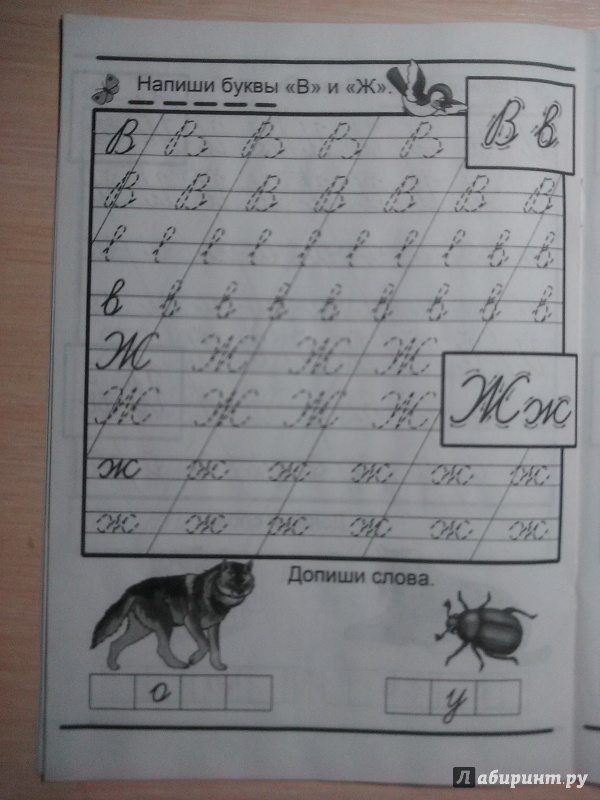 Напиши буквы «В» и «Ж».
В В В В В
В в
В В В В В В В
в в
в в в в в в в в в
Ж Ж Ж Ж
Ж ж
Ж Ж Ж Ж
ж ж ж ж ж ж
ж ж ж ж ж ж
Допиши слова.
о
у
Лабиринт.ру